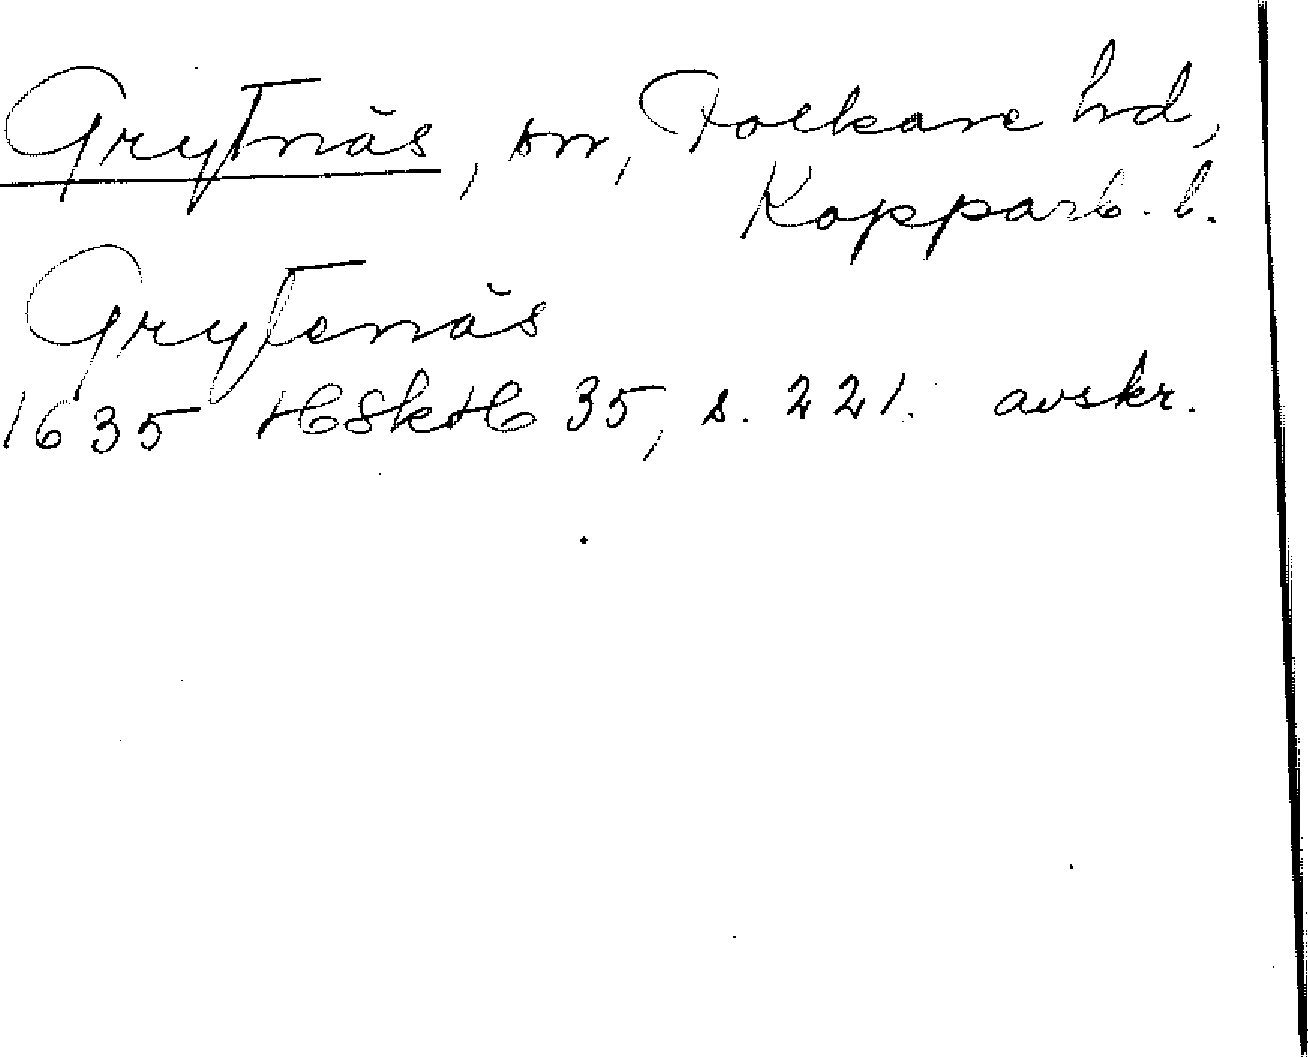 Grytnäs, sn, Folkare hd,
Kopparb. l.
Grytenäs
1635 HSkH 35, s. 221. avskr.